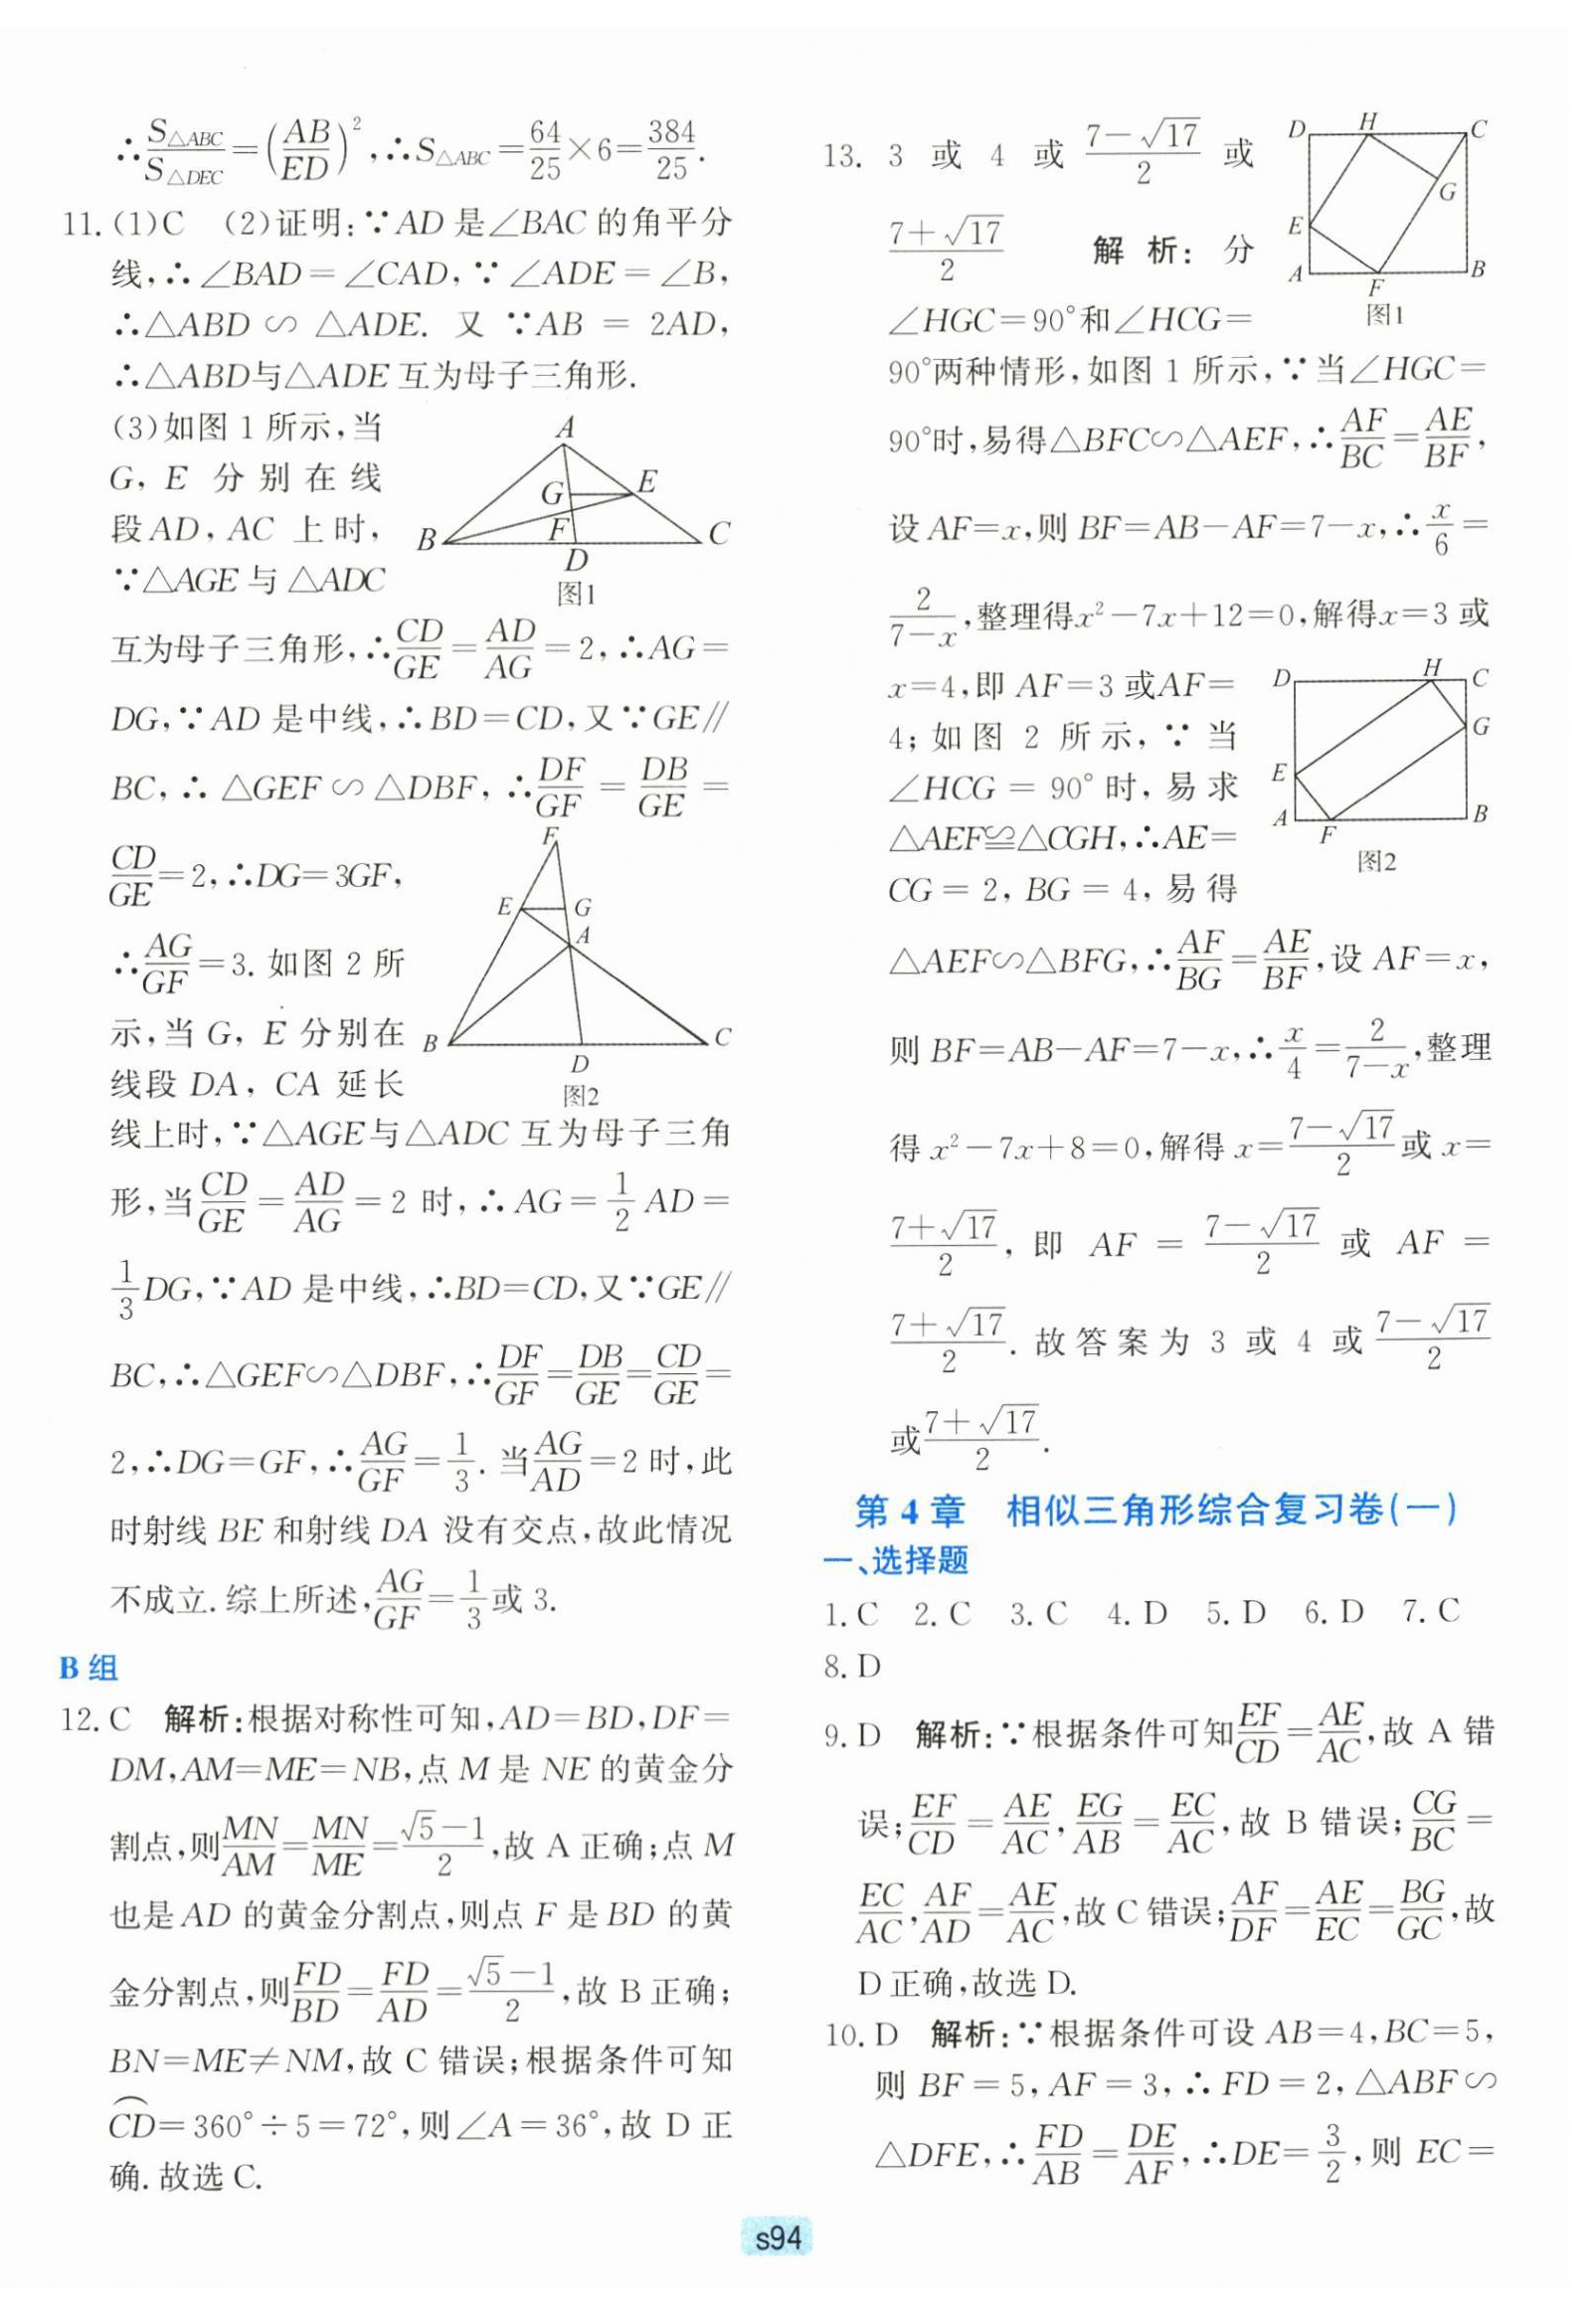 ∴S△ABC/S△DEC=(AB/ED)²,∴S△ABC=64/25×6=384/25.
11.(1)C (2)证明:∵AD是∠BAC的角平分
线,∴∠BAD=∠CAD,∵∠ADE=∠B,
∴△ABD∽△ADE. 又∵AB=2AD,
∴△ABD与△ADE互为母子三角形.
(3)如图1所示,当
G,E分别在线
段AD,AC上时,
∵△AGE与△ADC
A
G
E
B
F
C
D
图1
互为母子三角形,∴CD/GE=AD/AG=2,∴AG=
DG,∵AD是中线,∴BD=CD,又∵GE∥
BC,∴△GEF∽△DBF,∴DF/GF=DB/GE=
CD/GE=2,∴DG=3GF,
∴AG/GF=3.如图2所
示,当G,E分别在
线段DA,CA延长
F
E
G
A
B
C
D
图2
线上时,∵△AGE与△ADC互为母子三角
形,当CD/GE=AD/AG=2时,∴AG=1/2AD=
1/3DG,∵AD是中线,∴BD=CD,又∵GE∥
BC,∴△GEF∽△DBF,∴DF/GF=DB/GE=CD/GE=
2,∴DG=GF,∴AG/GF=1/3.当AG/AD=2时,此
时射线BE和射线DA没有交点,故此情况
不成立.综上所述,AG/GF=1/3或3.
B组
12.C 解析:根据对称性可知,AD=BD,DF=
DM,AM=ME=NB,点M是NE的黄金分
割点,则MN/AM=MN/ME=(√5-1)/2,故A正确;点M
也是AD的黄金分割点,则点F是BD的黄
金分割点,则FD/BD=FD/AD=(√5-1)/2,故B正确;
BN=ME≠NM,故C错误;根据条件可知
⌒CD=360°÷5=72°,则∠A=36°,故D正
确.故选C.
13. 3或4或(7-√17)/2或
(7+√17)/2 解析:分
∠HGC=90°和∠HCG=
D
H
C
G
E
A
F
B
图1
90°两种情形,如图1所示,∵当∠HGC=
90°时,易得△BFC∽△AEF,∴AF/BC=AE/BF,
设AF=x,则BF=AB-AF=7-x,∴x/6=
2/(7-x),整理得x²-7x+12=0,解得x=3或
x=4,即AF=3或AF=
4;如图2所示,∵当
∠HCG=90°时,易求
△AEF≌△CGH,∴AE=
CG=2,BG=4,易得
D
H
C
G
E
A
F
B
图2
△AEF∽△BFG,∴AF/BG=AE/BF,设AF=x,
则BF=AB-AF=7-x,∴x/4=2/(7-x),整理
得x²-7x+8=0,解得x=(7-√17)/2或x=
(7+√17)/2,即AF=(7-√17)/2或AF=
(7+√17)/2.故答案为3或4或(7-√17)/2
或(7+√17)/2.
第4章 相似三角形综合复习卷(一)
一、选择题
1.C 2.C 3.C 4.D 5.D 6.D 7.C
8.D
9.D 解析:∵根据条件可知EF/CD=AE/AC,故A错
误;EF/CD=AE/AC,EG/AB=EC/AC,故B错误;CG/BC=
EC/AC,AF/AD=AE/AC,故C错误;AF/DF=AE/EC=BG/GC,故
D正确,故选D.
10.D 解析:∵根据条件可设AB=4,BC=5,
则BF=5,AF=3,∴FD=2,△ABF∽
△DFE,∴FD/AB=DE/AF,∴DE=3/2,则EC=
s94